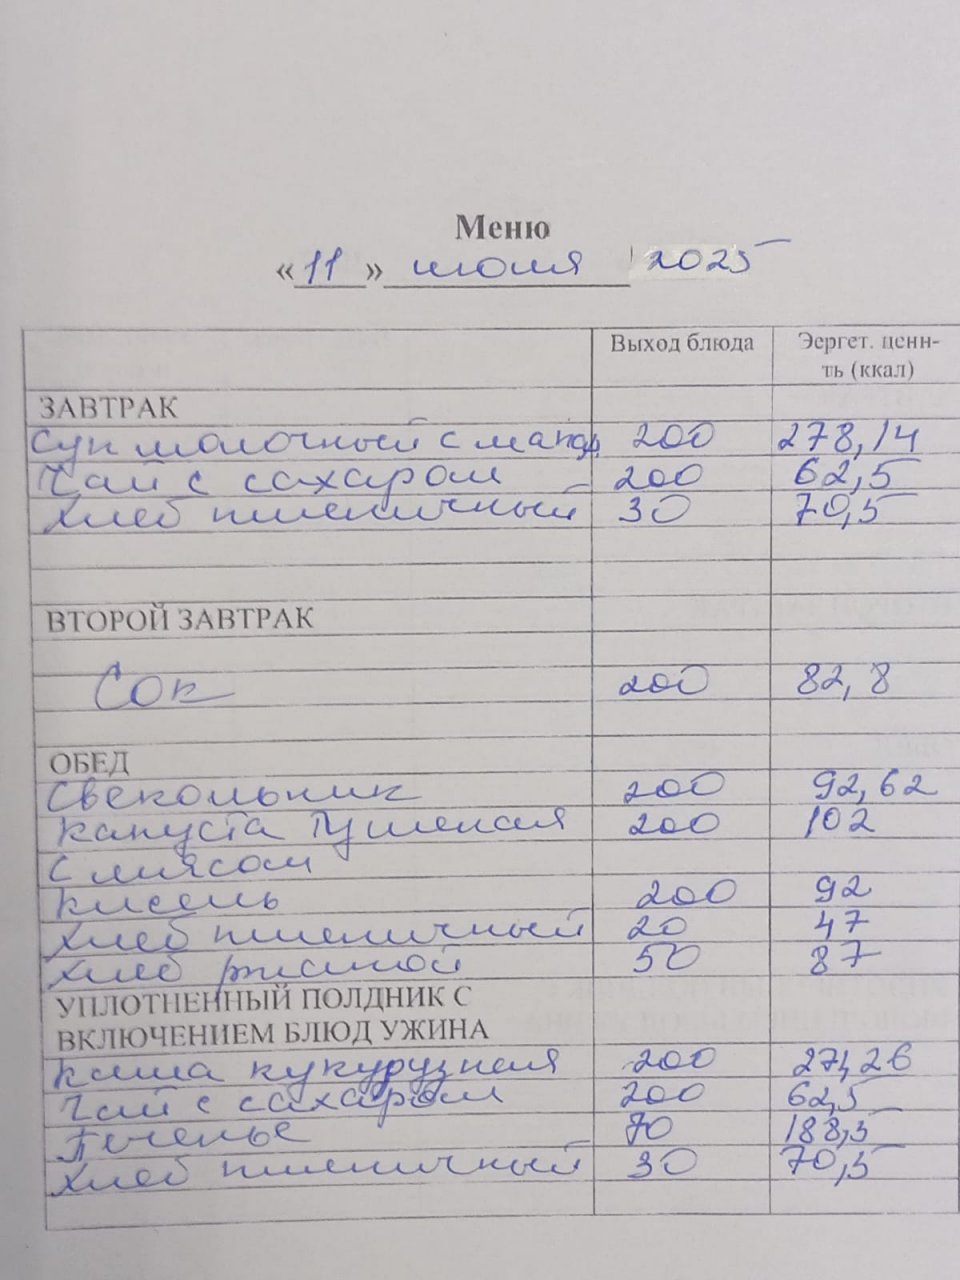 Меню
«11» июля 2025
Выход блюда Эергет. ценн-
ть (ккал)
ЗАВТРАК
Суп молочный с мака 200 278,14
Чай с сахаром 200 62,5
Хлеб пшеничный 30 70,5
ВТОРОЙ ЗАВТРАК
Сок 200 82,8
ОБЕД
Свекольник 200 92,62
Капуста тушеная 200 102
с мясом
Кисель 200 92
Хлеб пшеничный 20 47
Хлеб ржаной 50 87
УПЛОТНЕННЫЙ ПОЛДНИК С
ВКЛЮЧЕНИЕМ БЛЮД УЖИНА
Каша кукурузная 200
Чай с сахаром 200 62,5
Печенье 188,5
Хлеб пшеничный 30 70,5